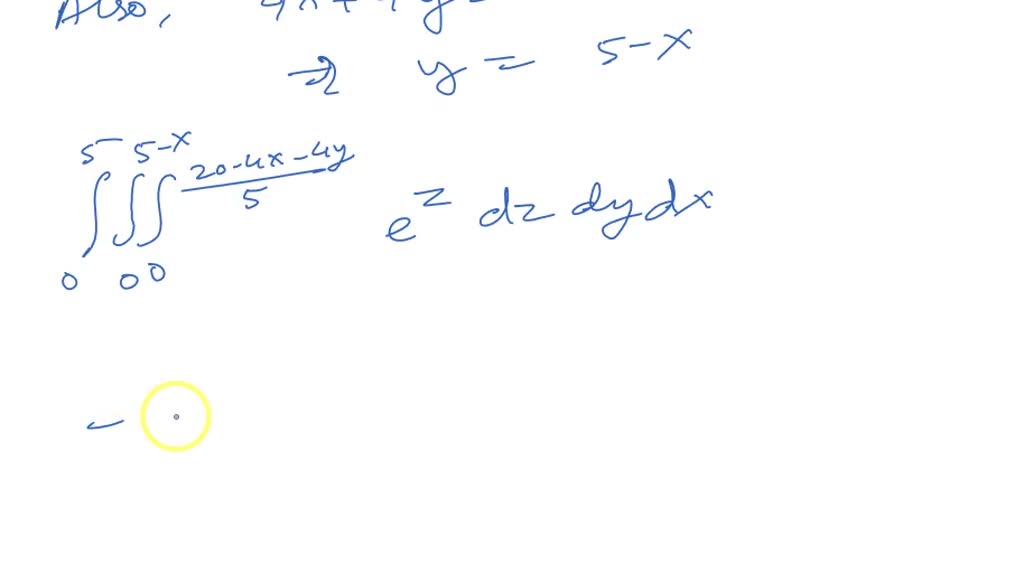 Also, 4x+4y=
⇒ y = 5-x
∫₀⁵ ∫₀^{5-x} ∫₀^{\frac{20-4x-4y}{5}} e^z dz dy dx
-